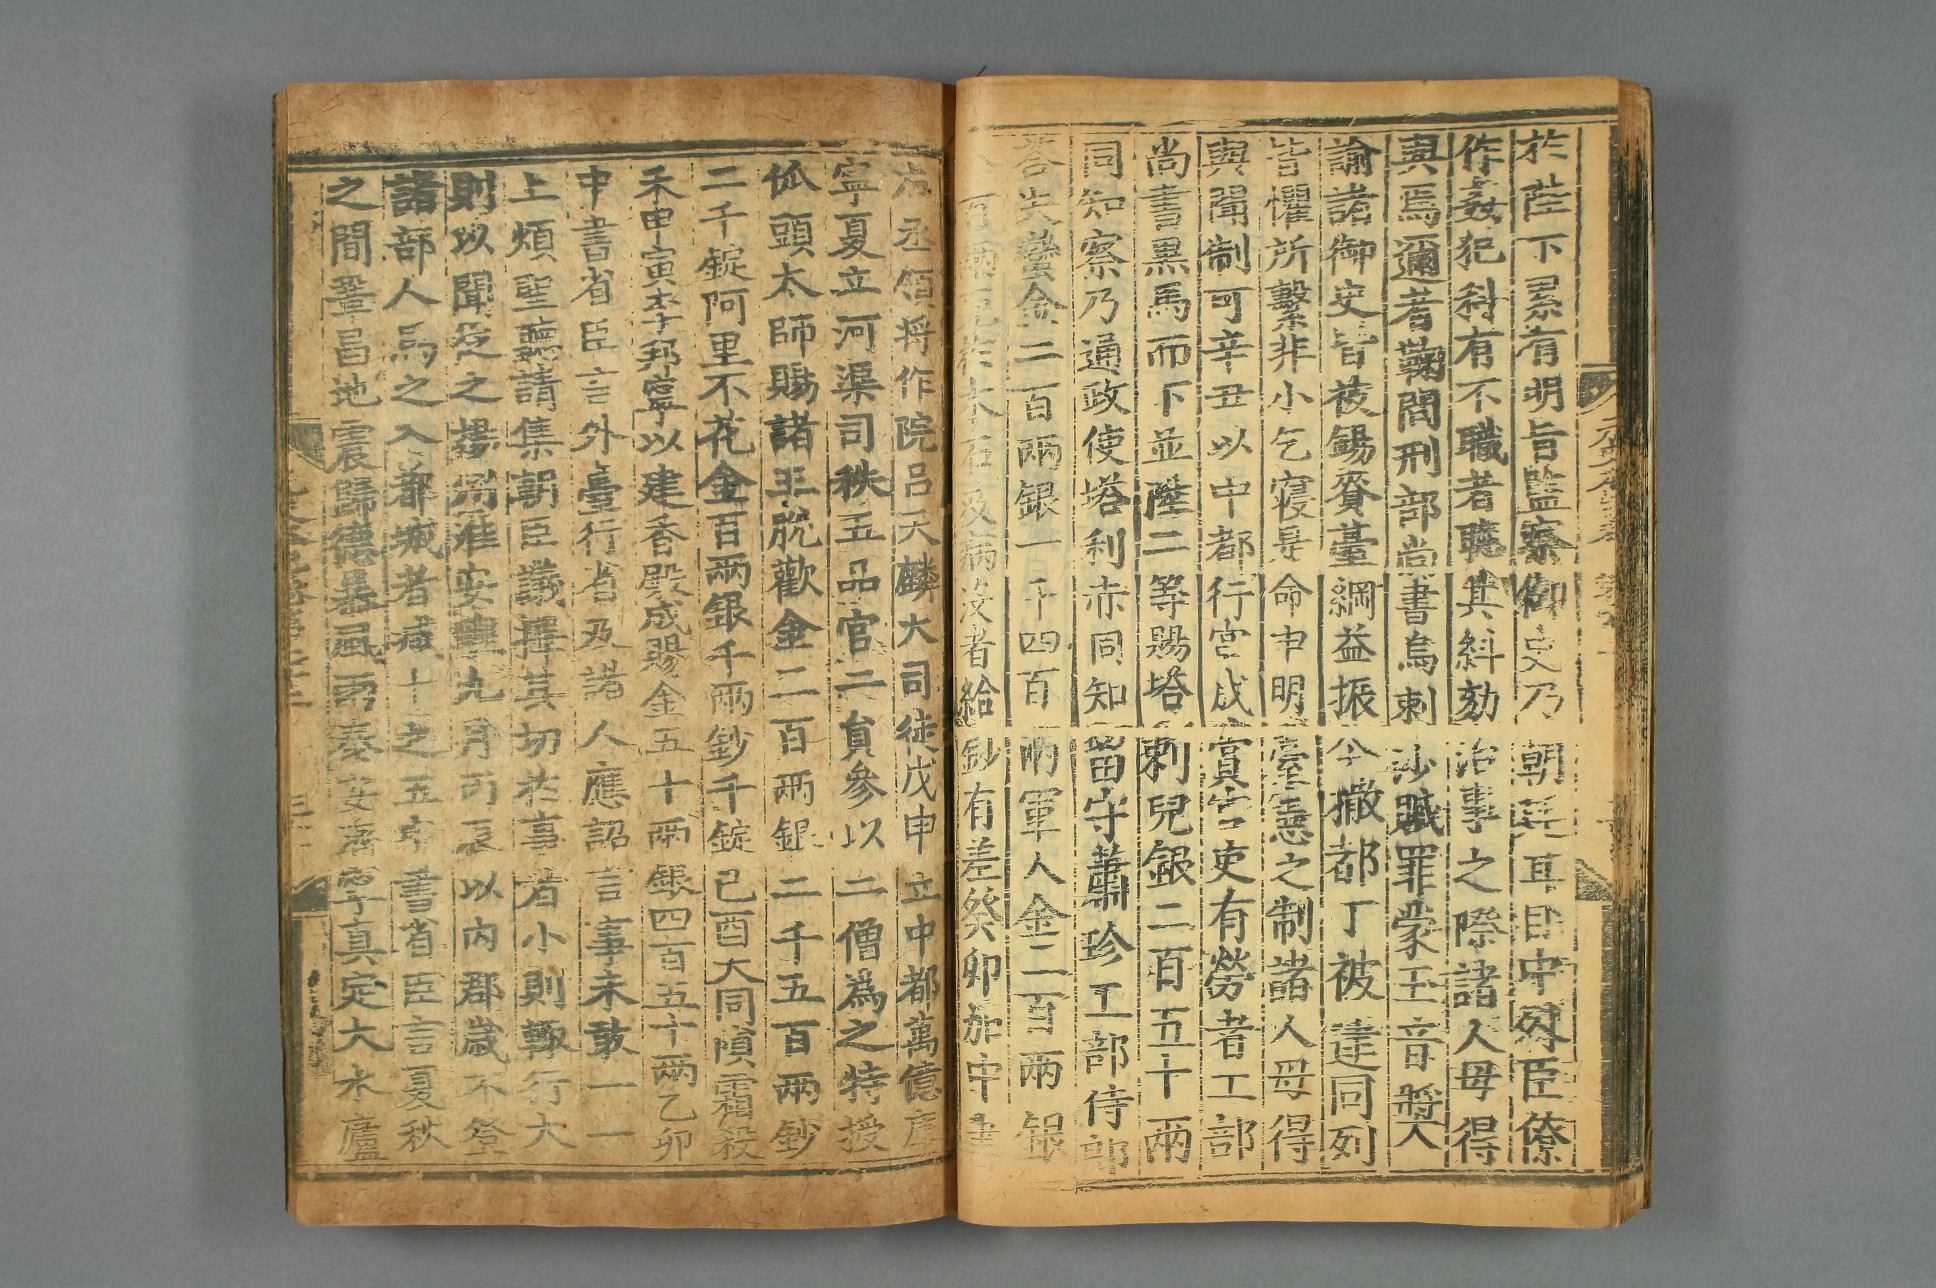 於陛下累有明旨監察御史乃朝廷耳目中外臣僚
作姦犯科有不職者聽其糾劾治事之際諸人毋得
與焉邇者鞫問刑部尚書烏剌沙贓罪蒙玉音奬
諭諸御史皆被錫賚臺綱益振今撒都丁被逮同列
皆懼所繫非小乞寢是命申明臺憲之制諸人毋得
與聞制可辛丑以中都行宮成賞官吏有勞者工部
尚書黑馬而下並陞二等賜塔剌兒銀二百五十兩
同知察乃通政使塔利赤同知留守蕭珍工部侍郎
荅失蠻金二百兩銀一千四百兩軍人金二百兩銀
石及病沒者給鈔有差癸卯加中書
丞領將作院呂天麟大司徒戊申立中都萬億庫
寧夏立河渠司秩五品官二員參以二僧為之特授
佤頭太師賜諸王脫歡金二百兩銀二千五百兩鈔
二千錠阿里不花金百兩銀千兩鈔千錠己酉大同隕霜殺
禾甲寅李邦寧以建香殿成賜金五十兩銀四百五十兩乙卯
中書省臣言外臺行省及諸人應詔言事未敢一一
上煩聖聽請集朝臣議擇其切於事者小則輒行大
則以聞從之揚州淮安九月丙辰以內郡歲不登
諸部人馬之入都城者減十之五中書省臣言夏秋
之間鞏昌地震歸德暴風雨泰安濟寧真定大水廬